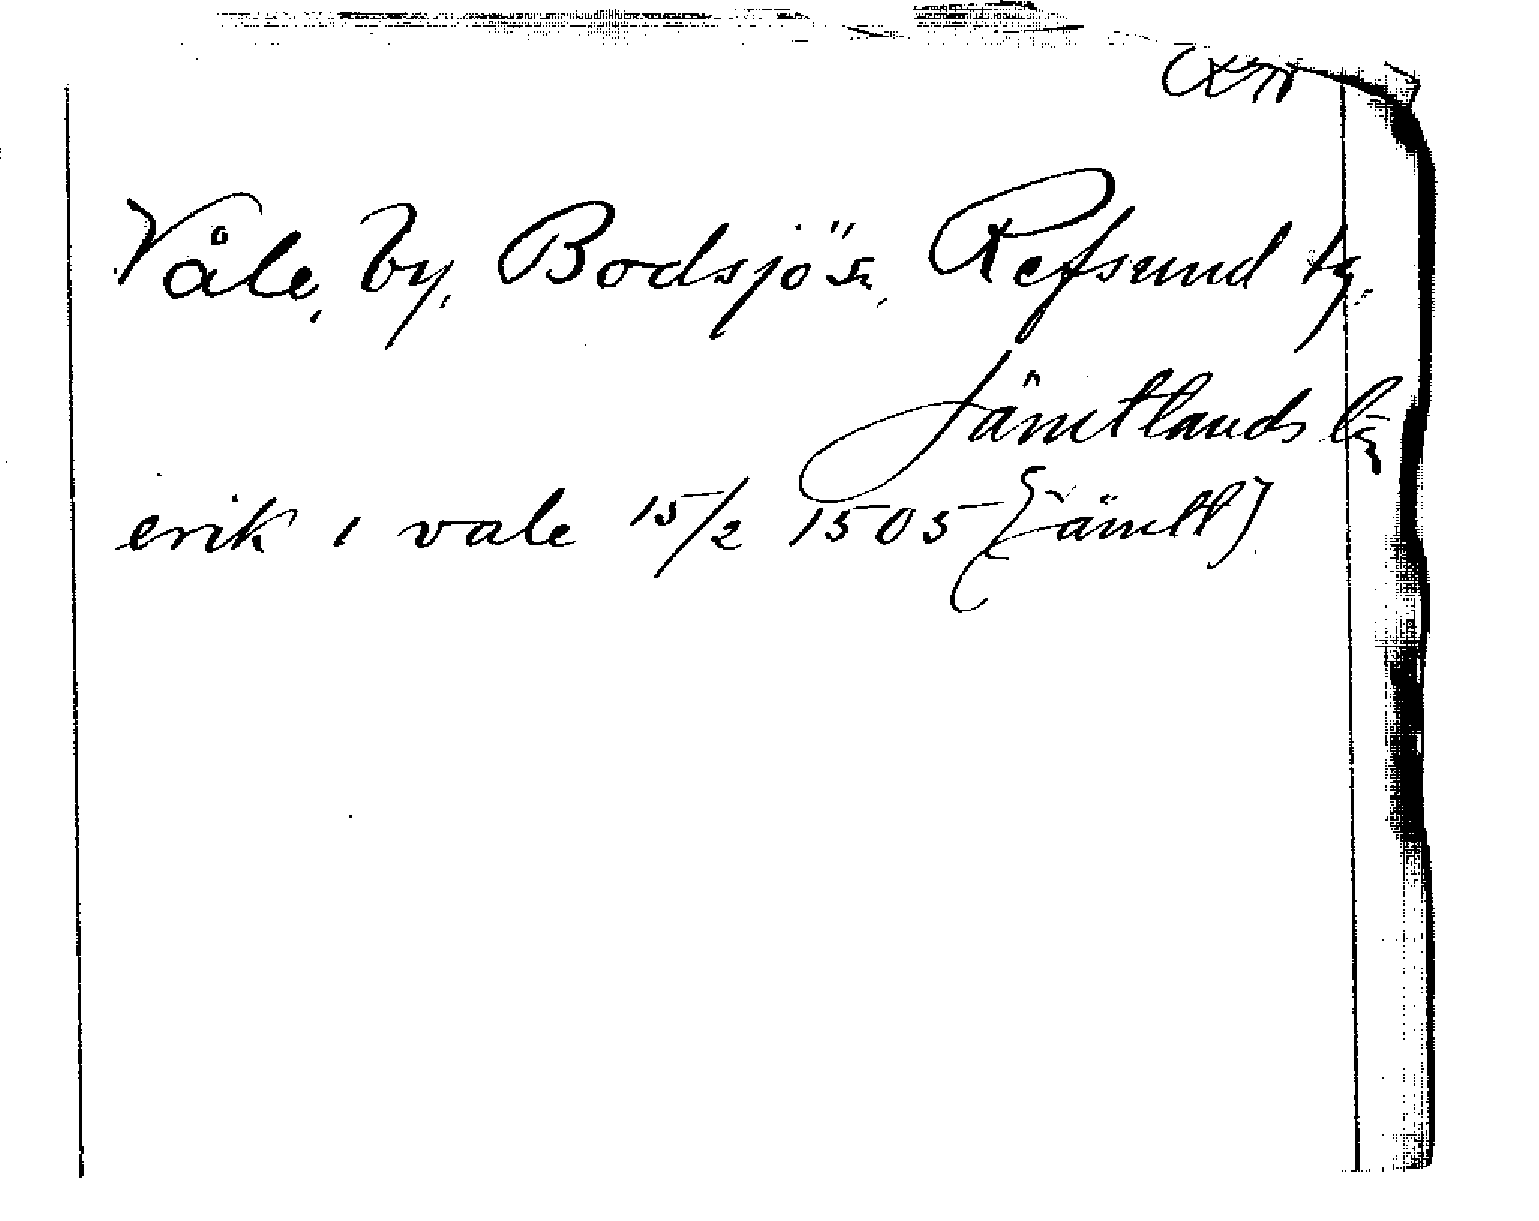 Våle, by, Bodsjö sn, Refsund tg,
Jämtlands län
erik i vale 15/2 1505 (Jämtl)